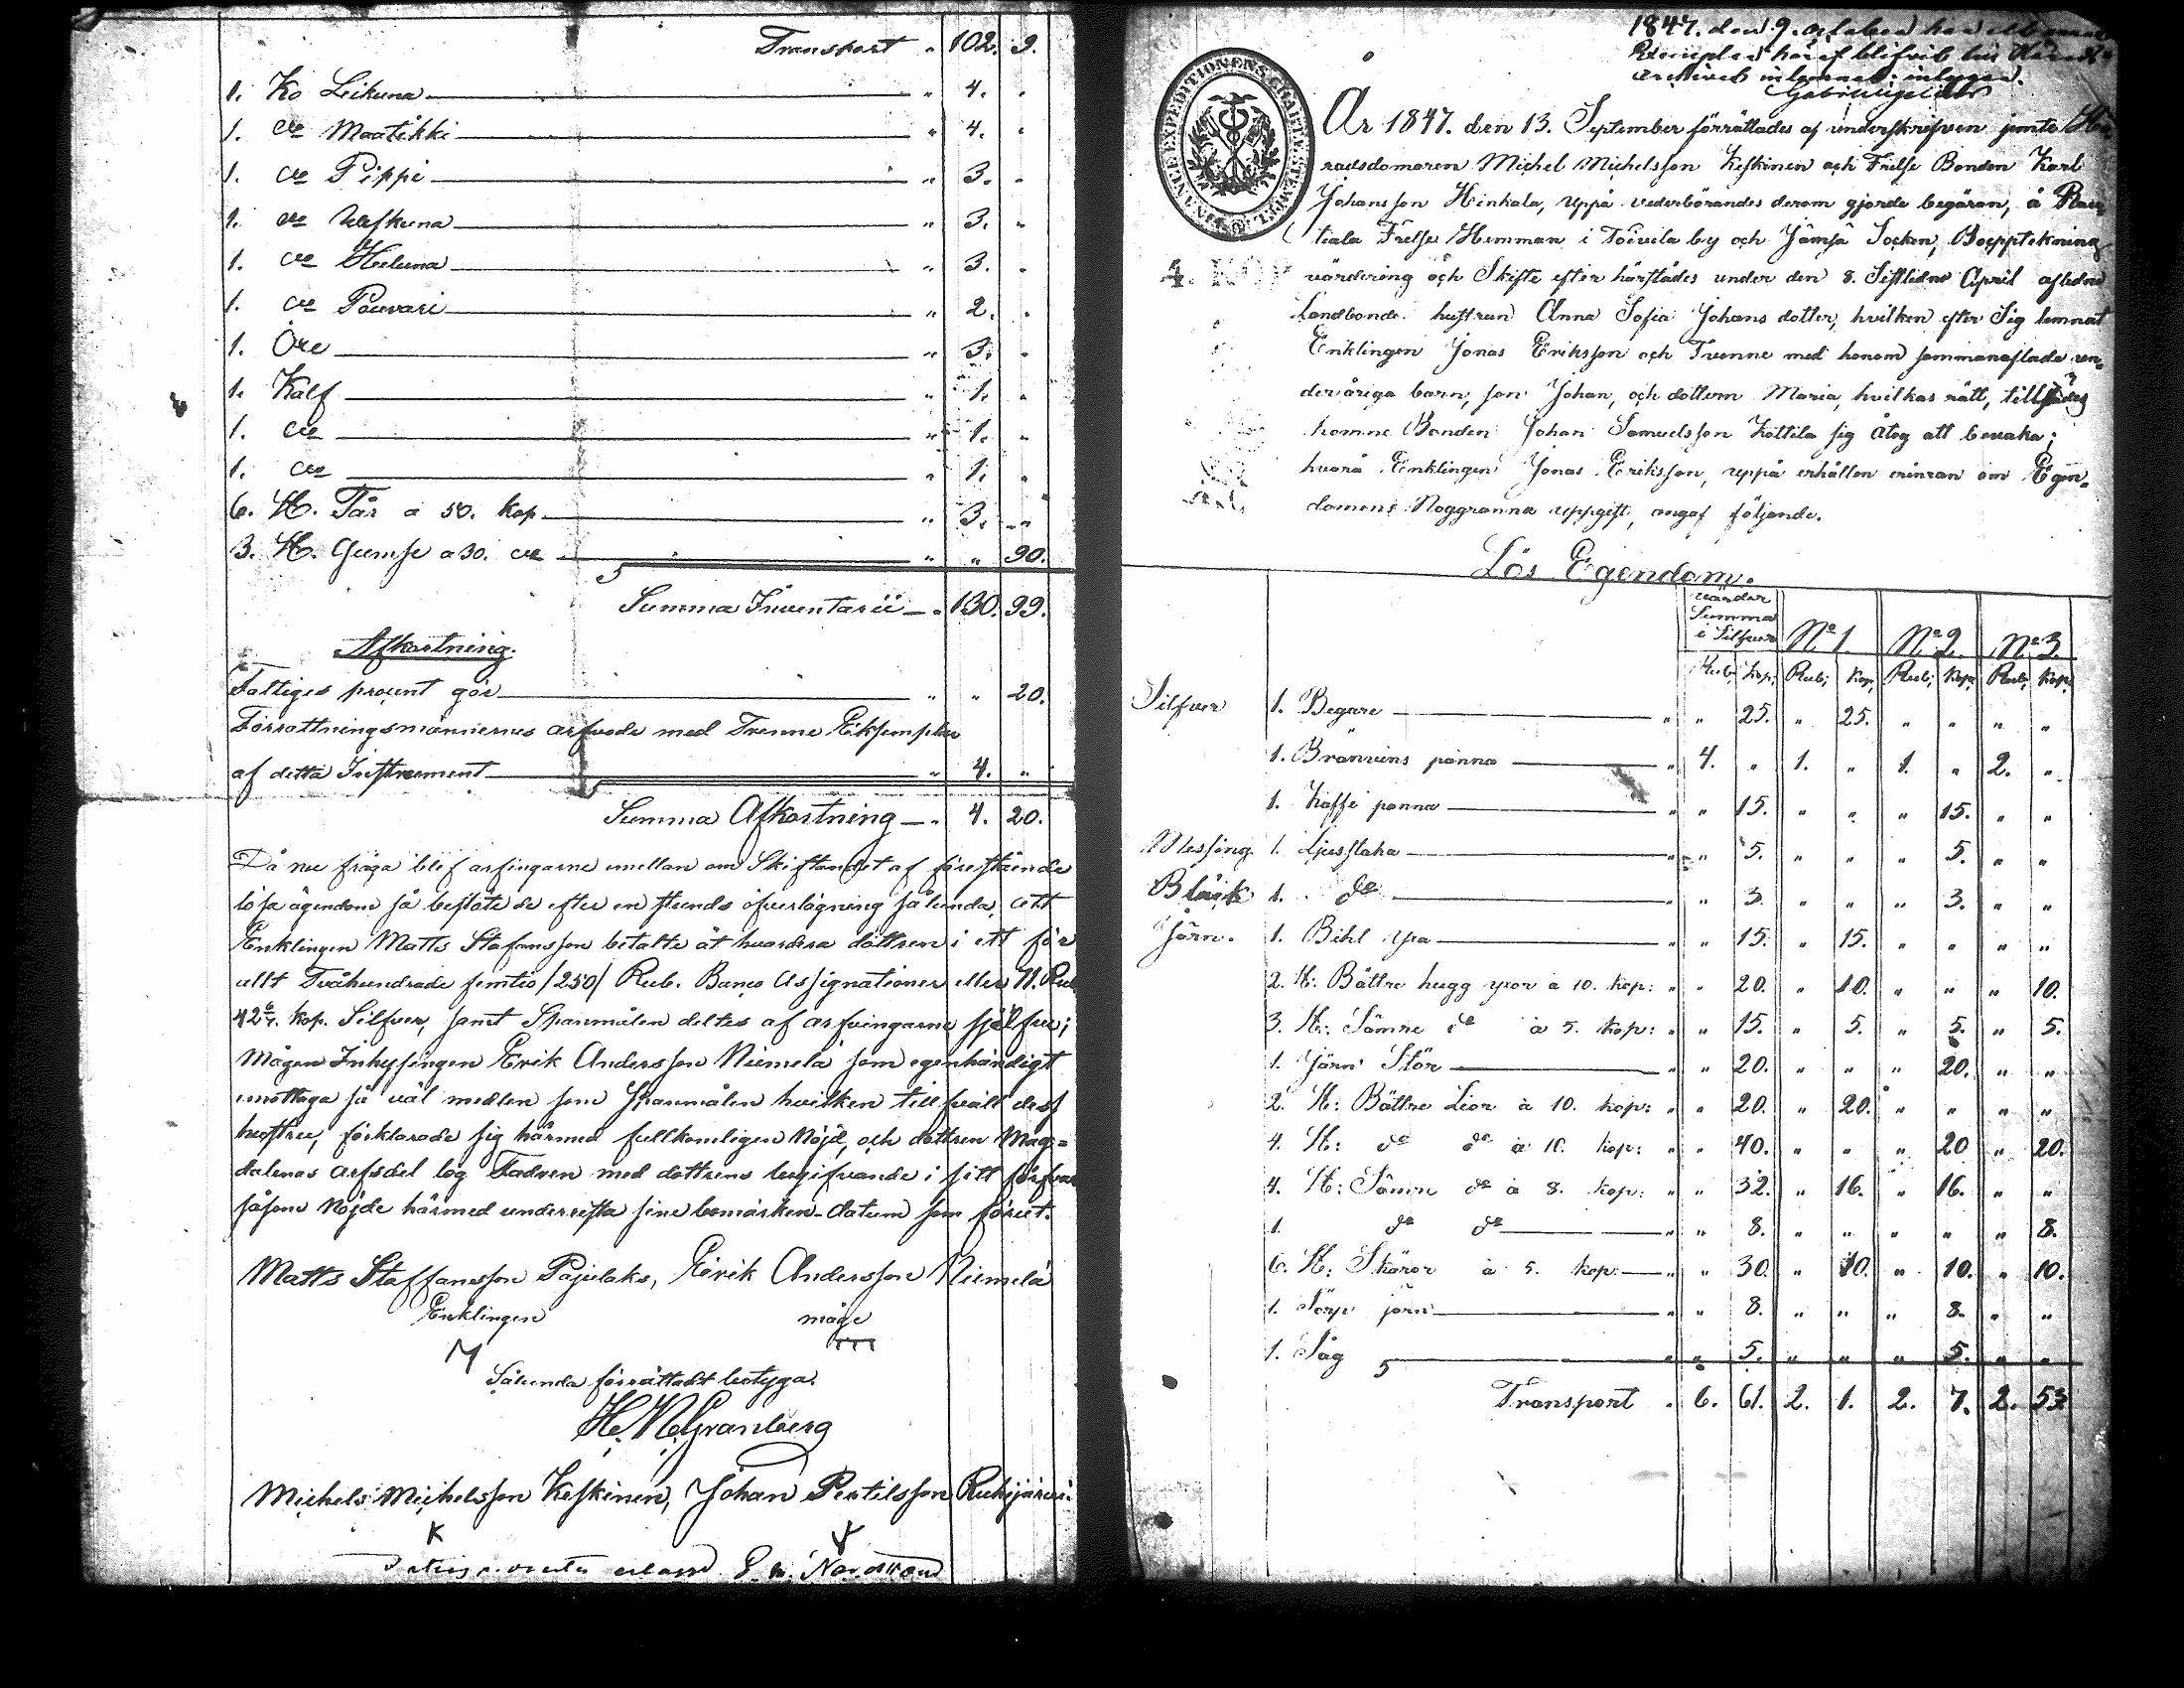 Transport " 102. 9.
1. Ko Leikuna " 4. "
1. do Maatikki " 4. "
1. do Pippi " 3. "
1. do " 3. "
1. do Heluna " 3. "
1. do Pouvari " 2. "
1. Oxe " 3. "
1. Kalf " 1. "
1. do " 1. "
1. do " 1. "
6. St. Får a 50. kop " 3. "
3. St. Gumse a 30. do " " 90.
Summa Inventarii " 130. 99.
Afkortning.
Fattiges procent gör " " 20.
Förrättningsmännernes arfvode med Trenne Eksemplar
af detta Instrument " 4. "
Summa Afkortning " 4. 20.
Då nu fråga blef arfingarne emellan om Skiftandet af förestående
lösa ägendom så beslöto de efter en stunds öfverlägning sålunda, att
Enklingen Matts Stafansson betalte åt hvardera döttren i ett för
allt Tvåhundrade femtio /250/ Rub. Banco Assignationer eller 71. Rub
42 6/7. kop. Silfver, samt Spanmålen deltes af arfvingarne sjelfve;
Mågen Inhysingen Erik Andersson Niemelä som egenhändigt
emottaga så väl medlen som Spanmålen hvilken tillfallit dess
hustru, förklarade sig härmed fullkomligen nöjd, och dottren Mag-
dalenas arfsdel tog Fadren med dottrens begifvande i sitt förfvar
såsom Nöjde härmed underrista sine bomärken. Datum som förut.
Matts Staffansson Pajulaks, Erik Andersson Niemelä
Enklingen måge
Sålunda förrättadt betyga.
H. W. Granberg
Michels Michelsson Keskinen, Johan Pertilsson Ruhijärvi
K
erlagd Nordstrand
1847. den 9. October har
Exemplar häraf blifvit till Härads
Archivet inlemnad; intygar.
FINANCE EXPEDITIONENS CHARTÆ STEMPEL
År 1847. den 13. September förrättades af underskrifven jemte Hä-
radsdomaren Michel Michelsson Keskinen och Frelse Bonden Karl
Johansson Hinkala, uppå vederbörandes derom gjorde begäran, å Rau-
tiala Frelse Hemman i Toivila by och Jämsä Socken, Bouppteckning
värdering och Skifte efter härstädes under den 8. Sistledne April afledne
Landbonde hustrun Anna Sofia Johans dotter, hvilken efter Sig lemnat
Enklingen Jonas Eriksson och Tvenne med honom sammanaflade un-
deråriga barn, son Johan, och dottern Maria, hvilkas rätt, tillstädes
komne Bonden Johan Samuelsson Kottila sig åtog att bevaka;
hvarå Enklingen Jonas Eriksson, uppå erhållen erinran om Egen-
domens Noggranna uppgift, angaf följande.
4. KOP
Lös Egendom.
värder
Summa
i Silfver No 1. No 2. No 3.
Rub; Kop; Rub; Kop; Rub; Kop; Rub; Kop;
Silfver 1. Begare " 25. " 25. " " " "
1. Bränvins panna 4. " 1. " 1. " 2. "
1. Kaffe panna " 15. " " " 15. " "
Messing. 1. Ljusstaka " 5. " " " 5. " "
Bläck 1. do " 3. " " " 3. " "
Järn. 1. Bihl yxa " 15. " 15. " " " "
2. St: Bättre hugg yxor a 10. kop: " 20. " 10. " " " 10.
3. St: Sämre do à 5. kop: " 15. " 5. " 5. " 5.
1. Järn Stör " 20. " " " 20. " "
2. St: Bättre Lior à 10. kop: " 20. " 20. " " " "
4. St: do do à 10. kop: " 40. " " " 20 " 20.
4. St: Sämre do à 8. kop: " 32. " 16. " 16. " "
1. do do " 8. " " " " " 8.
6. St: Skäror à 5. kop: " 30. " 10. " 10. " 10.
1. järn " 8. " " " 8. " "
1. Såg " 5. " " " 5. " "
Transport " 6. 61. 2. 1. 2. 7. 2. 53